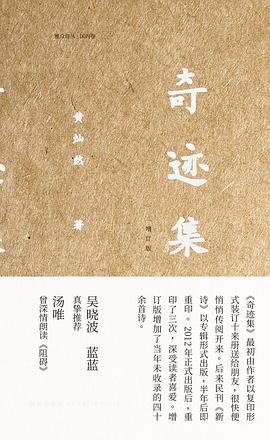 雅众诗丛·国内卷
奇迹集
增订版
黄灿然 著
《奇迹集》最初由作者以复印形
式装订十来册送给朋友，很快便
悄悄传阅开来。后来民刊《新
诗》以专辑形式出版，半年后即
重印。2012年正式出版后，重
印了三次，深受读者喜爱。增
订版增加了当年未收录的四十
余首诗。
吴晓波 蓝蓝
真挚推荐
汤唯
曾深情朗读《阻碍》